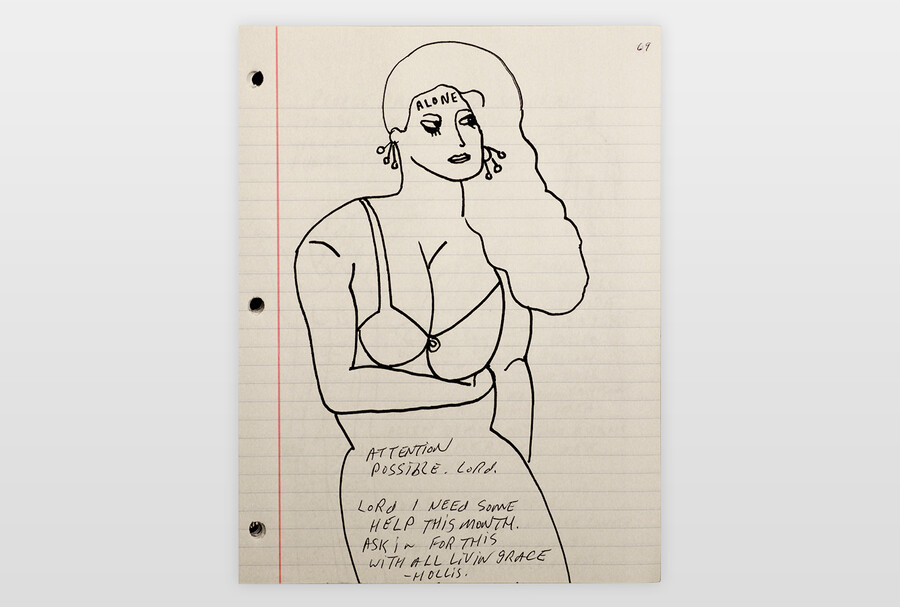 69
ALONE
ATTENTION
POSSIBLE. LORd.
LORd I NEEd SOME
HELP THIS MONTH.
ASKiN FOR THIS
WITH ALL LiViN GRACE
-HOLLiS.